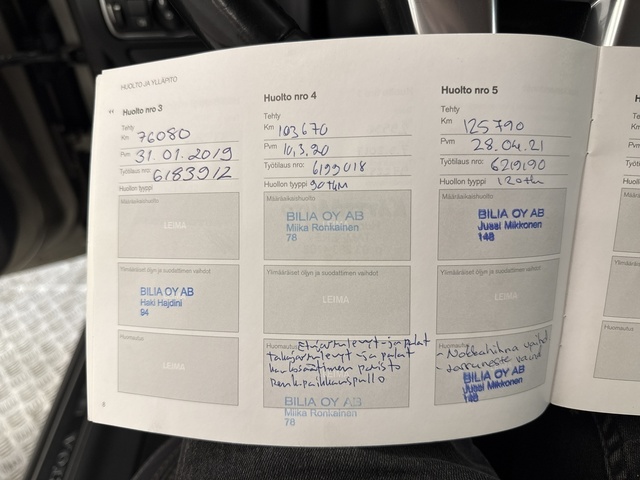 HUOLTO JA YLLÄPITO
Huolto nro 3
Tehty
Km 76080
Pvm 31.01.2019
Työtilaus nro: 6183912
Huollon tyyppi
Määräaikaishuolto
LEIMA
Ylimääräiset öljyn ja suodattimen vaihdot
BILIA OY AB
Haki Hajdini
94
Huomautus
LEIMA
8
Huolto nro 4
Tehty
Km 103670
Pvm 10.3.20
Työtilaus nro: 6199018
Huollon tyyppi 90tkm
Määräaikaishuolto
BILIA OY AB
Miika Ronkainen
78
Ylimääräiset öljyn ja suodattimen vaihdot
LEIMA
Huomautus Etujarrulevyt ja palat
takajarrulevyt ja palat
kaukosäätimen paristo
Renk.paikkauspullo
BILIA OY AB
Miika Ronkainen
78
Huolto nro 5
Tehty
Km 125790
Pvm 28.04.21
Työtilaus nro: 6219190
Huollon tyyppi 120tk
Määräaikaishuolto
BILIA OY AB
Jussi Mikkonen
148
Ylimääräiset öljyn ja suodattimen vaihdot
LEIMA
Huomautus
- Nokkahihna vaihd
- Jarruneste vaihd
BILIA OY AB
Jussi Mikkonen
148